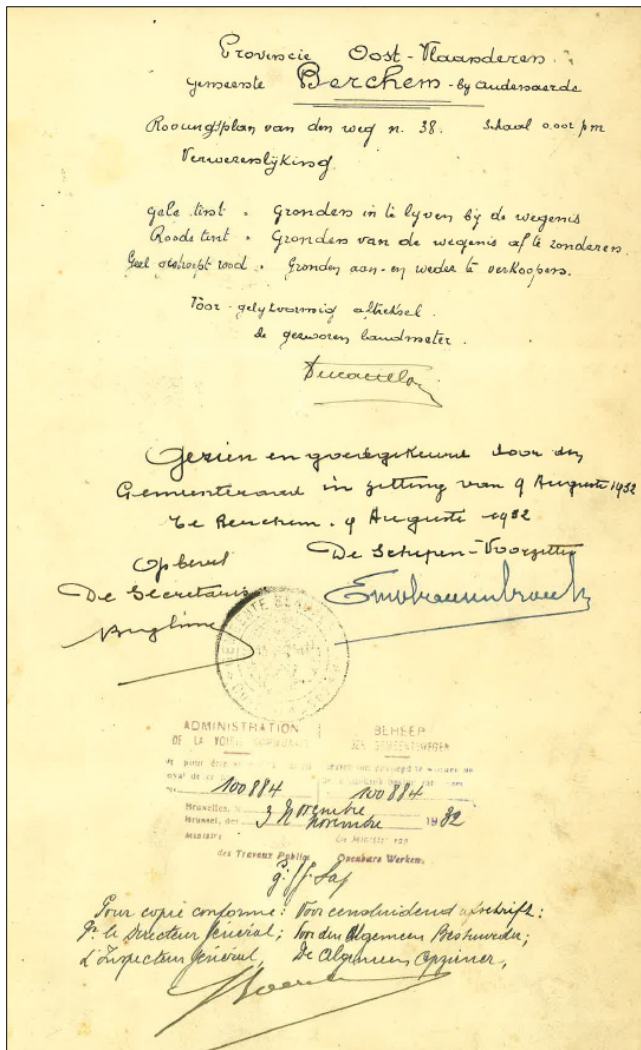 Provincie Oost-Vlaanderen.
gemeente Berchem - by audenaerde
Rooiingsplan van den weg n. 38. Schaal 0.002 p m
Verwezenlijking
gele tint = Gronden in te lyven by de wegenis
Roode tint = Gronden van de wegenis af te zonderen
Geel gestreept rood = Gronden aan- en weder te verkoopen.
Voor gelykvormig aftreksel.
de gezworen landmeter.
Gezien en goedgekeurd door den
Gemeenteraad in zitting van 9 Auguste 1932
Te Berchem. 9 Auguste 1932
Op bevel De Schepen-Voorzitter
De Secretaris
GEMEENTE
ADMINISTRATION BEHEER
DE LA VOIRIE COMMUNALE DER GEMEENTEWEGEN
100884 100884
Bruxelles, le 3 Novembre
Brussel, den novembre 1932
Ministre De Minister van
des Travaux Publics Openbare Werken.
Pour copie conforme: Voor eensluidend afschrift:
Pr le Directeur Général; Voor den Algemeen Bestuurder;
L'Inspecteur Général, De Algemeen Opziener,